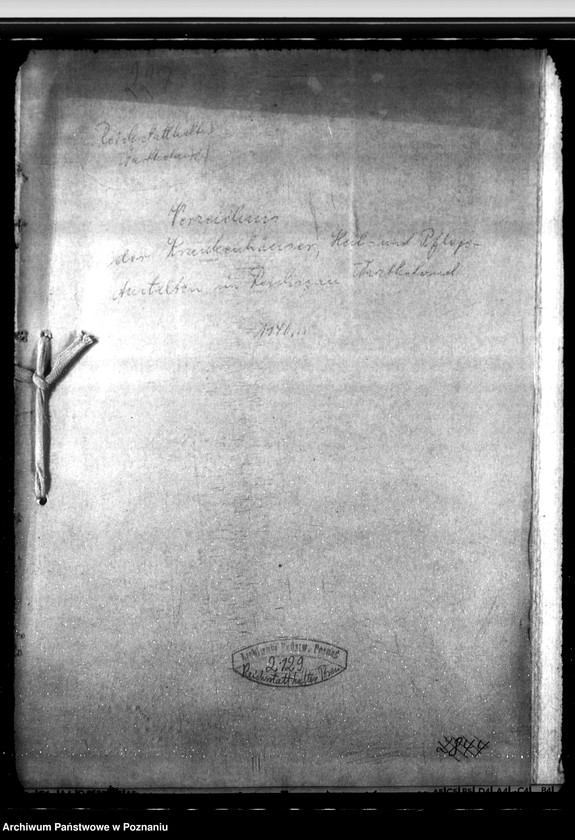 Reichsstatthalter
Wartheland
Verzeichnis
der Krankenhäuser, Heil- und Pflege-
Anstalten im Reichsgau Wartheland
1940
Archiwum Państw. Poznań
2129
Reichsstatthalter Posen
Archiwum Państwowe w Poznaniu